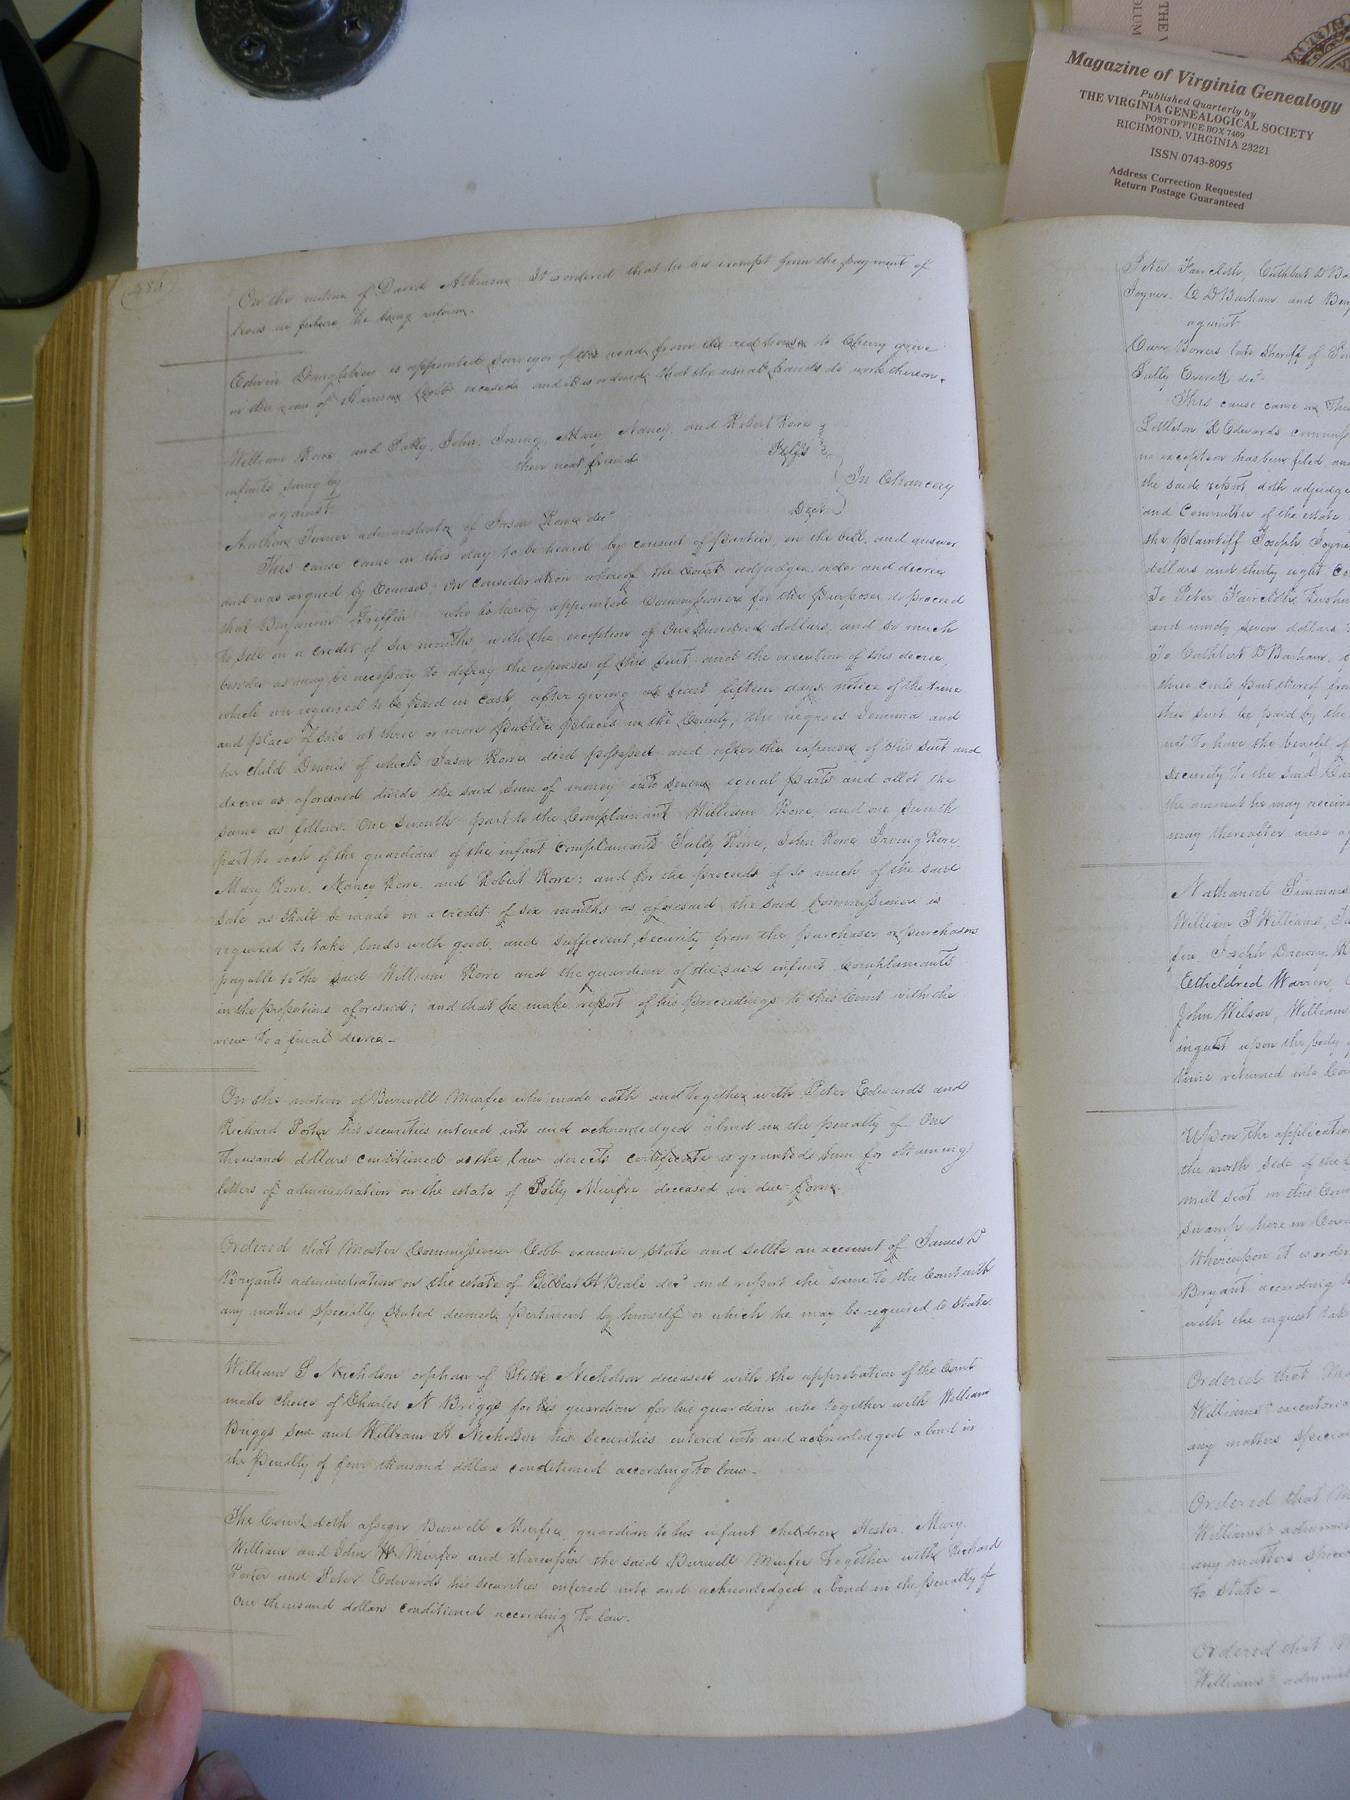 Magazine of Virginia Genealogy
Published Quarterly by
THE VIRGINIA GENEALOGICAL SOCIETY
POST OFFICE BOX 7469
RICHMOND, VIRGINIA 23221
ISSN 0743-8095
Address Correction Requested
Return Postage Guaranteed
THE V
OLUM
On the motion of David Atkinson It is ordered that he be exempt from the payment of
in future he being infirm.
Edwin Daughtrey is appointed surveyor of the road from the red house to Cherry grove
in the room of Cobb excused and it is ordered that the usual hands do work thereon.
William Rowe and Sally, John, Irving, Mary, Nancy, and Robert Rowe
infants suing by their next friend Pltffs
against In Chancery
Turner administrator of Jason Rowe decd Deft
This cause came on this day to be heard by consent of parties, on the bill, and answer
and was argued by Counsel; On Consideration whereof the Court adjudges order and decree
that Benjamin Griffin who is hereby appointed Commissioner for the purpose do proceed
to sell on a credit of six months, with the exception of One hundred dollars, and so much
besides as may be necessary to defray the expenses of this suit and the execution of this decree,
which are required to be paid in cash, after giving at least fifteen days notice of the time
and place of sale at three or more public places in the County, the negroes Jemima and
her child Dennis of which Jason Rowe died possessed and after the expenses of this suit and
decree as aforesaid divide the said sum of money into seven equal parts and allot the
same as follows. One seventh part to the Complainant William Rowe, and one seventh
part to each of the guardians of the infant Complainants Sally Rowe, John Rowe Irving Rowe,
Mary Rowe, Nancy Rowe, and Robert Rowe; and for the proceeds of so much of the said
sale as shall be made on a credit of six months as aforesaid, the said Commissioner is
required to take bonds with good, and sufficient security from the purchaser or purchasers
payable to the said William Rowe and the guardian of the said infant Complainants
in the proportions aforesaid; and that he make report of his proceedings to this Court with the
view to a final decree—
On the motion of Burwell Murfee who made oath and together with Peter Edwards and
Richard Porter his securities entered into and acknowledged a bond in the penalty of One
thousand dollars conditioned as the law directs certificate is granted him for obtaining
letters of administration on the estate of Polly Murfee deceased in due form.
Ordered that Master Commissioner Cobb examine state and settle an account of James D
Bryants administration on the estate of Gilbert H Beale decd and report the same to the Court with
any matters specially stated deemed pertinent by himself or which he may be required to state
William S Nicholson orphan of Nicholson deceased with the approbation of the Court
made choice of Charles N Briggs for his guardian for his guardian who together with William
Briggs Senr and William H Nicholson his Securities entered into and acknowledged a bond in
the penalty of four thousand dollars conditioned according to law—
The Court doth assign Burwell Murfee guardian to his infant children Hester, Mary,
William and John W Murfee and thereupon the said Burwell Murfee together with Richard
Porter and Peter Edwards his securities entered into and acknowledged a bond in the penalty of
One thousand dollars conditioned according to law.
Peter Faircloth, Cuthbert D Ba
Joyner. C D Barham and Benj
against
Carr Bowers late sheriff of So
Sally Everett decd
This cause came on
Littleton R Edwards commiss
no exception has been filed and
the said report doth adjudge
and Committee of the estate
the plaintiff Joseph Joyner
dollars and thirty eight ce
To Peter Faircloth
and ninety seven dollars
To Cuthbert D Barham,
three cents part thereof
this suit be paid by the
not to have the benefit of
security to the said
the amount he may receive
may thereafter arise
Nathaniel Simmons
William S Williams,
for Joseph Drewry,
Etheldred Warren,
John Wilson, William
inquest upon the body
time returned into Co
Upon the application
the north side of the
mill seat in this Coun
swamp here in Co
Whereupon it is order
Bryant according
with the inquest take
Ordered that
Williams executor
any matters specia
Ordered that
Williams adminis
any matters spec
to state—
Ordered that
Williams adminis